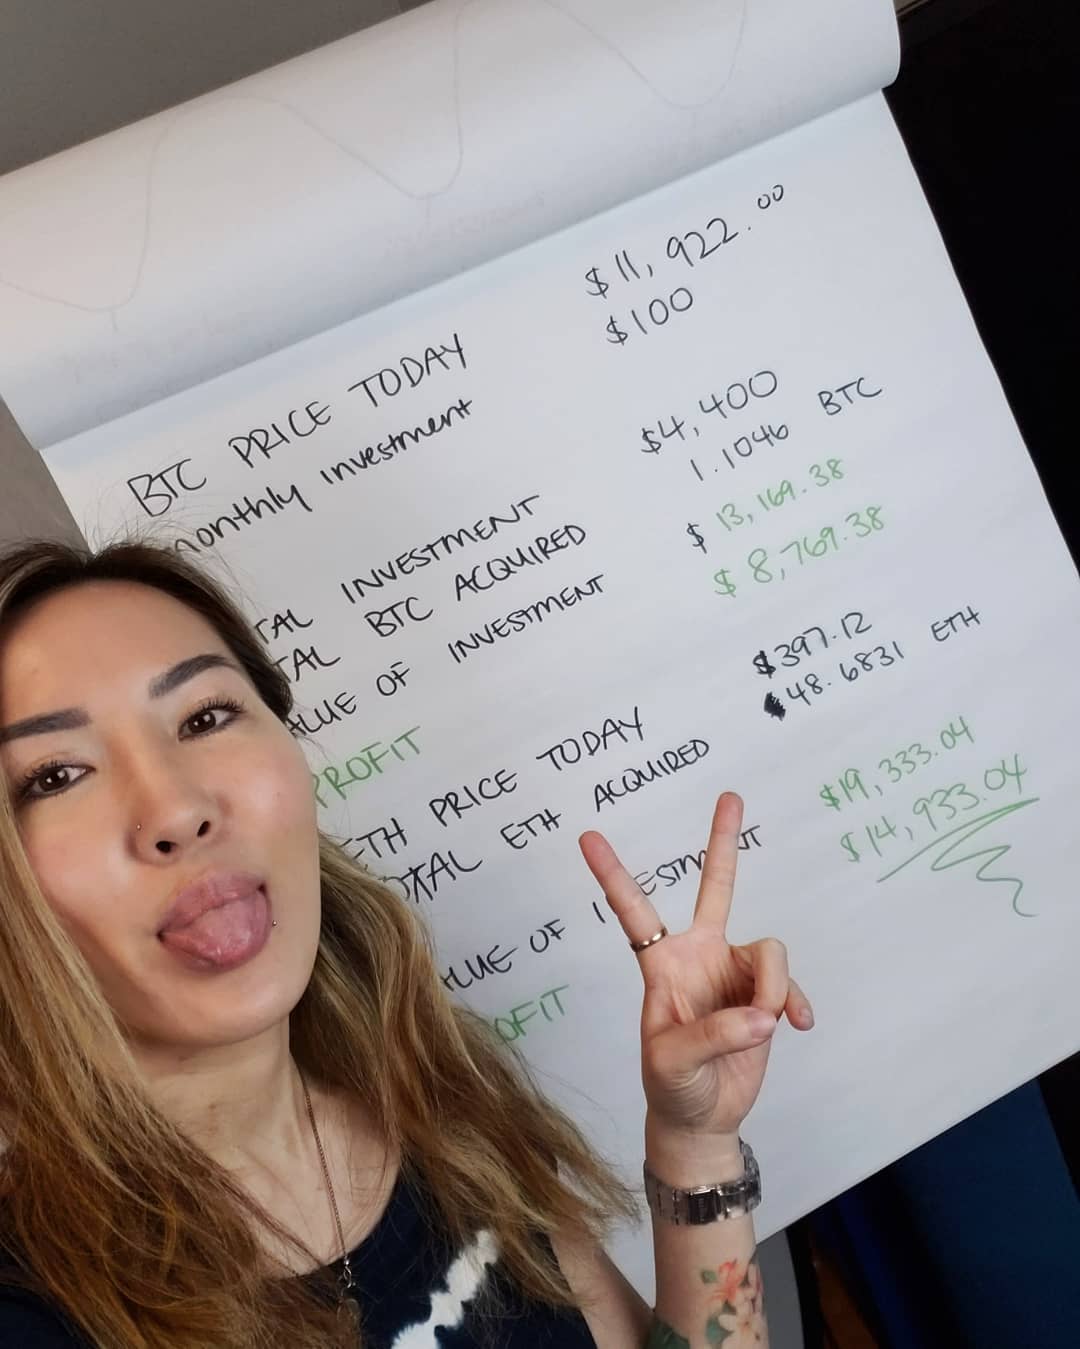 BTC PRICE TODAY $11,922.00
monthly investment $100
TAL INVESTMENT $4,400
TAL BTC ACQUIRED 1.1046 BTC
ALUE OF INVESTMENT $13,169.38
PROFIT $8,769.38
ETH PRICE TODAY $397.12
OTAL ETH ACQUIRED 48.6831 ETH
ALUE OF I ESTM NT $19,333.04
OFIT $14,933.04